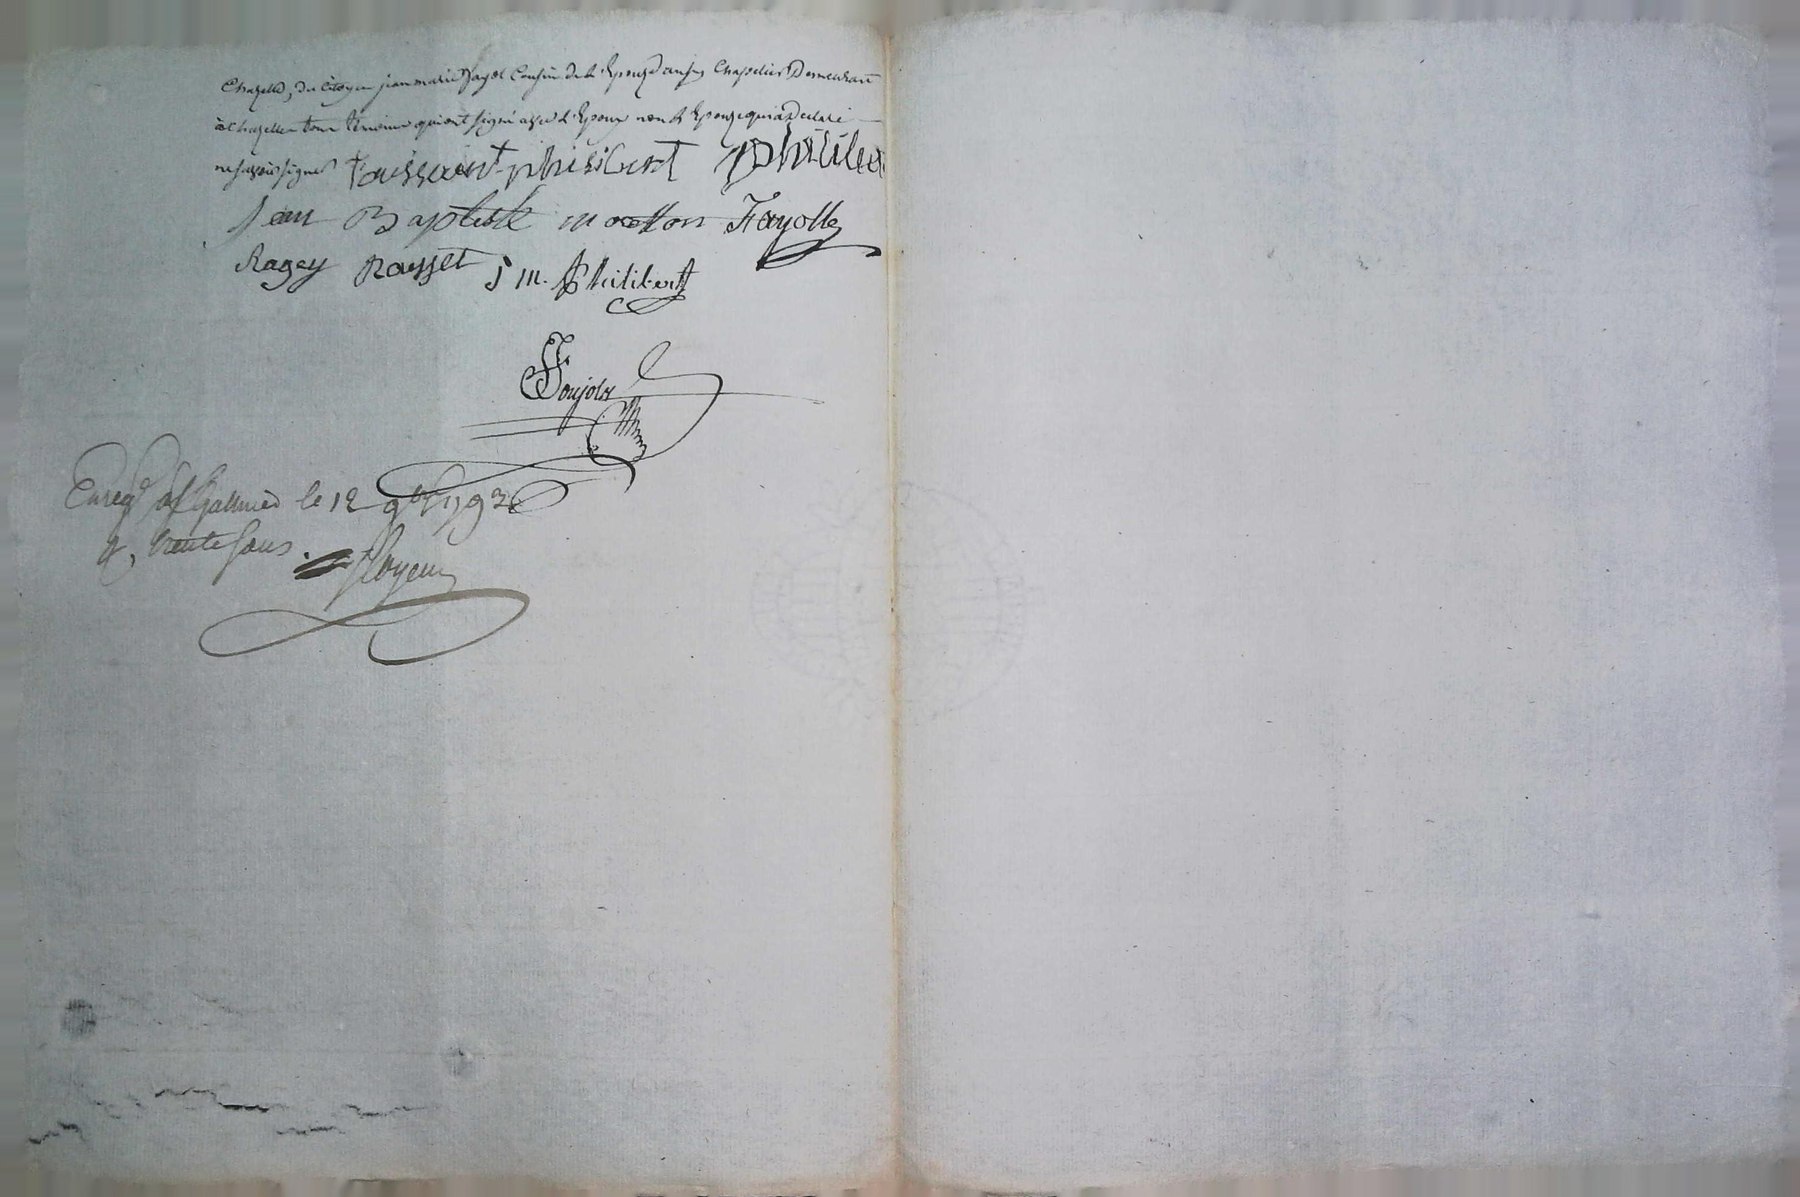 Chazelle, du citoyen jean marie fayol Cousin de l'Epouze aussy Chapelier Demeurant
à Chazelle tous témoins qui ont signé avec l'Epoux non l'Epouze qui a Declaré
ne savoir signer toissaint philibert philiber
Jean Baptiste motton Fayolle
Ragey Rousset J m. Philibert
Poujola
Enreg.é à St Galmier le 12 9bre 1792
R. trente sous.